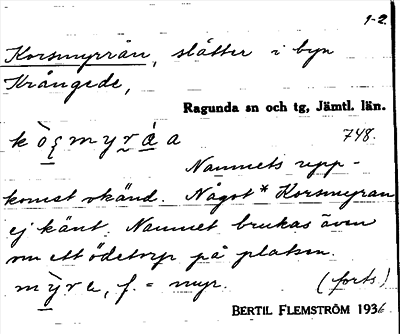 1-2.
Korsmyrrån, slåtter i byn
Krångede,
Ragunda sn och tg, Jämtl. län.
748.
Namnets upp-
komst okänd. Något * Korsmyran
ej känt. Namnet brukas även
om ett ödetorp på platsen.
f. = myr. (forts)
BERTIL FLEMSTRÖM 1936